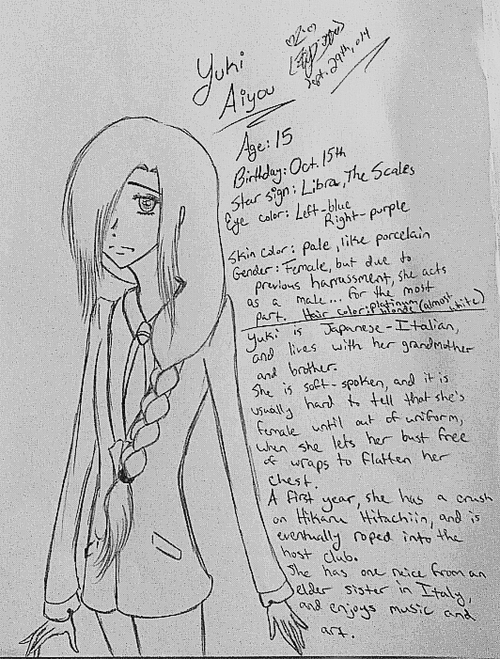 Yuki
Aiyou
Sept. 29th, 014
Age: 15
Birthday: Oct. 15th
Star sign: Libra, The Scales
Eye color: Left-blue
Right-purple
Skin color: pale, like porcelain
Gender: Female, but due to
previous harrassment, she acts
as a male... for the most
part. Hair color: platinum blonde (almost white)
Yuki is Japanese-Italian,
and lives with her grandmother
and brother.
She is soft-spoken, and it is
usually hard to tell that she's
female until out of uniform,
when she lets her bust free
of wraps to flatten her
chest.
A first year, she has a crush
on Hikaru Hitachiin, and is
eventually roped into the
host club.
She has one niece from an
elder sister in Italy,
and enjoys music and
art.